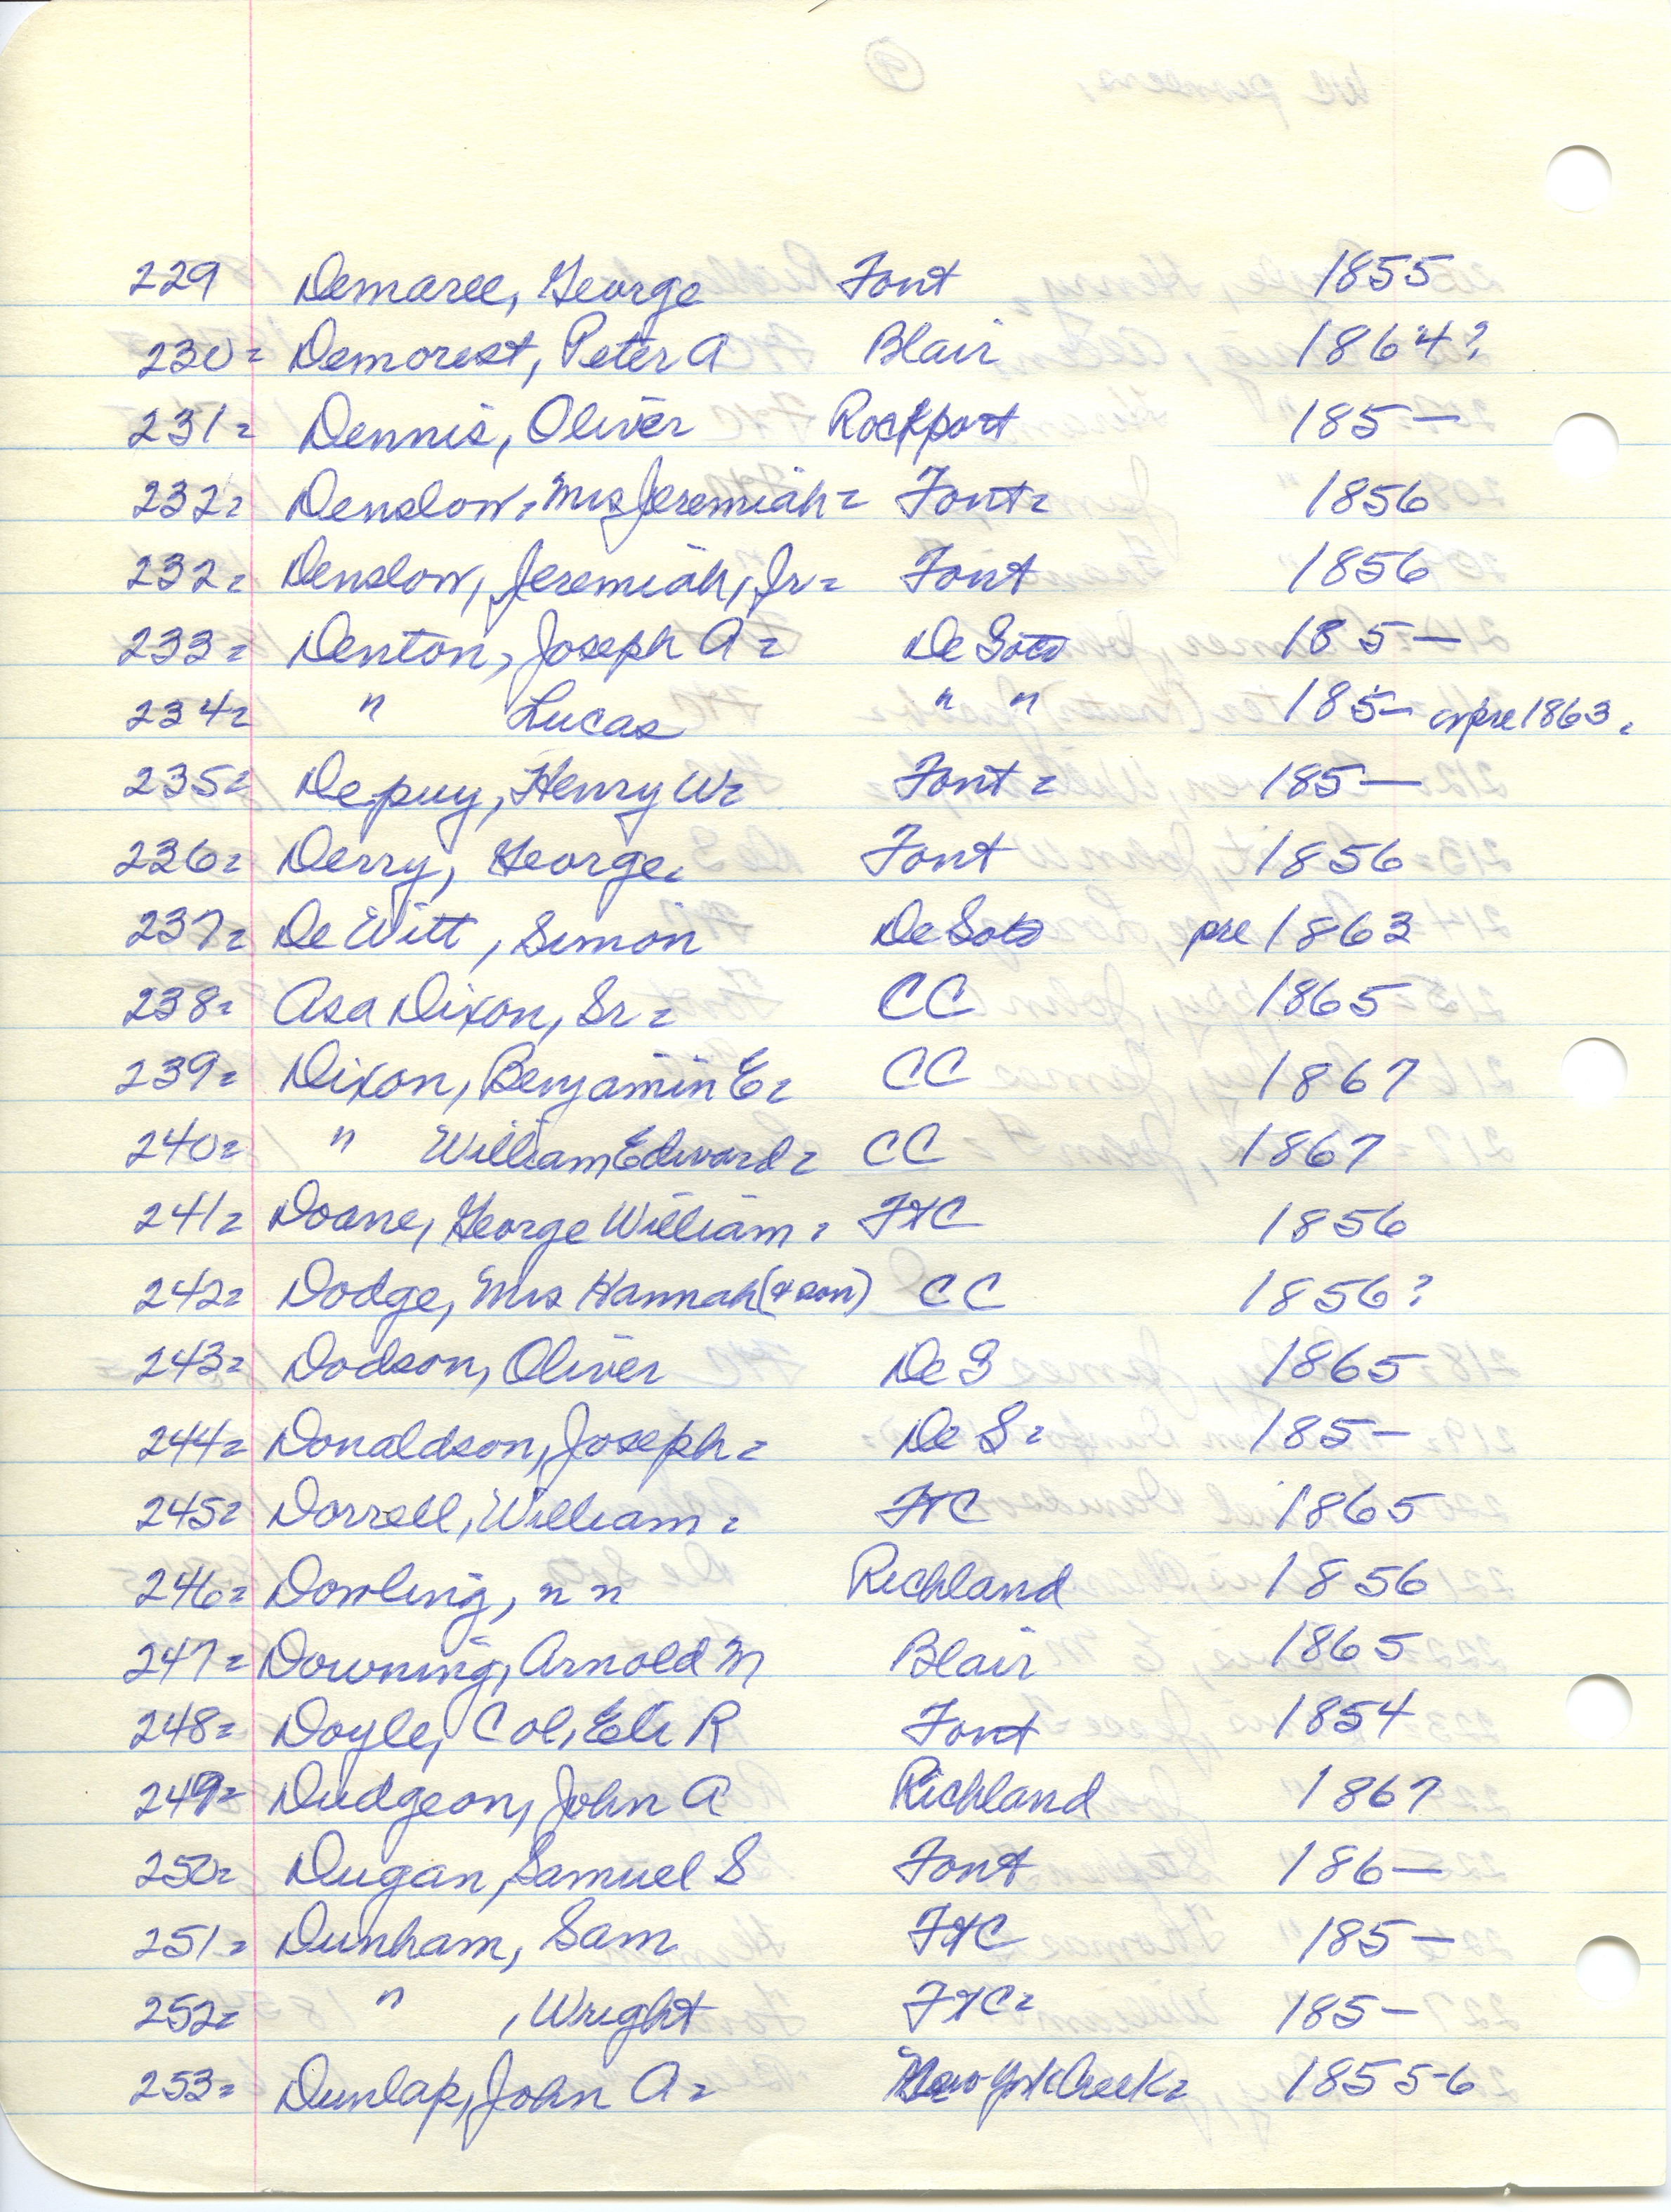 229 Demaree, George Font 1855
230= Demorest, Peter A Blair 1864?
231= Dennis, Oliver Rockport 185—
232= Denslow, Mrs Jeremiah= Font= 1856
232= Denslow, Jeremiah, Jr= Font 1856
233= Denton, Joseph A= De Soto 185—
234= " Lucas " " 185— or pre 1863.
235= Depuy, Henry W= Font= 185—
236= Derry, George. Font 1856
237= De Witt, Simon De Soto pre 1863
238= Asa Dixon, Sr= CC 1865
239= Dixon, Benjamin E= CC 1867
240= " William Edward= CC 1867
241= Doane, George William= FtC 1856
242= Dodge, Mrs Hannah (& son) CC 1856?
243= Dodson, Oliver De S 1865
244= Donaldson, Joseph= De S= 185—
245= Dorrell, William= FtC 1865
246= Dowling, n n Richland 1856
247= Downing, Arnold M Blair 1865
248= Doyle, Col, Eli R Font 1854
249= Dudgeon, John A Richland 1867
250= Dugan, Samuel S Font 186—
251= Dunham, Sam FtC 185—
252= " , Wright FtC= 185—
253= Dunlap, John A= New York Creek= 1855-6